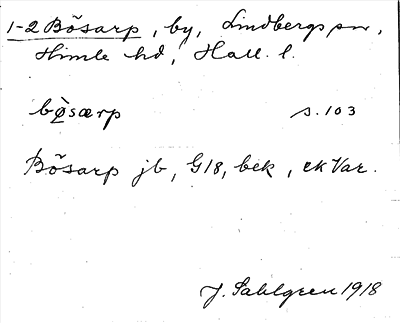 1-2 Bösarp, by, Lindbergs sn,
Himle hd, Hall. l.
bø̀særp s. 103
Bösarp jb, G18, bek, ek Var.
J. Sahlgren 1918